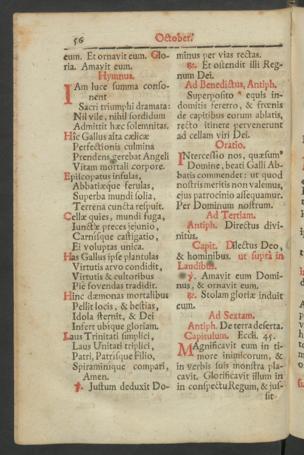 56 October.
eum. Et ornavit eum. Glo-
ria. Amavit eum.
Hymnus.
IAm luce summa conso-
nent
Sacri triumphi dramata:
Nil vile, nihil sordidum
Admittit hæc solemnitas.
Hîc Gallus alta cælicæ
Perfectionis culmina
Prendens gerebat Angeli
Vitam mortali corpore.
Episcopatus insulas,
Abbatiæque ferulas,
Superba mundi solia,
Terrena cuncta respuit.
Cellæ quies, mundi fuga,
Junctæ preces jejunio,
Carnisque castigatio,
Ei voluptas unica.
Has Gallus ipse plantulas
Virtutis arvo condidit,
Virtutis & cultoribus
Pie fovendas tradidit.
Hinc dæmonas mortalibus
Pellit locis, & bestias,
Idola sternit, & Dei
Infert ubique gloriam.
Laus Trinitati simplici,
Laus Unitati triplici,
Patri, Patrisque Filio,
Spiraminique compari,
Amen.
℣. Justum deduxit Do-
minus per vias rectas.
℟. Et ostendit illi Reg-
num Dei.
Ad Benedictus, Antiph.
Superposito * equis in-
domitis feretro, & frœnis
de capitibus eorum ablatis,
recto itinere pervenerunt
ad cellam viri Dei.
Oratio.
INtercessio nos, quæsum*
Domine, beati Galli Ab-
batis commendet: ut quod
nostris meritis non valemus,
ejus patrocinio assequamur.
Per Dominum nostrum.
Ad Tertiam.
Antiph. Directus divi-
nitùs.
Capit. Dilectus Deo,
& hominibus. ut suprà in
Laudibus.
℣. Amavit eum Domi-
nus, & ornavit eum.
℟. Stolam gloriæ induit
eum.
Ad Sextam.
Antiph. De terra deserta.
Capitulum. Eccli. 45.
MAgnificavit eum in ti-
more inimicorum, &
in verbis suis monstra pla-
cavit. Glorificavit illum in
in conspectu Regum, & jus-
sit